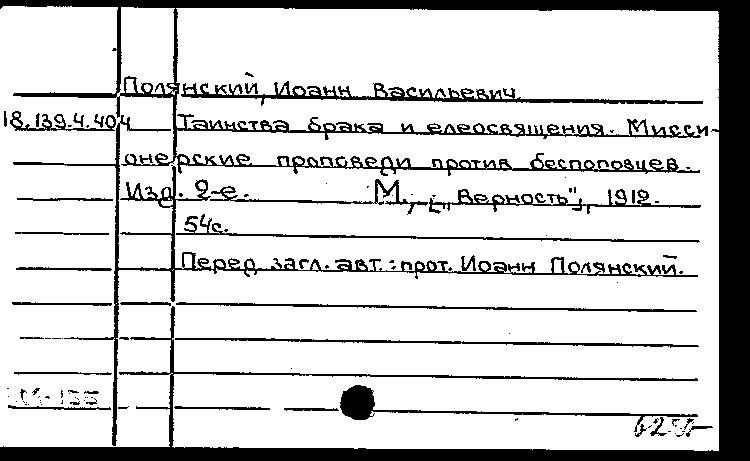 Полянский, Иоанн Васильевич
18.139.4.404 Таинства брака и елеосвящения. Мисси-
онерские проповеди против беспоповцев.
Изд. 2-е. М., [„Верность"], 1912.
54с.
Перед загл. авт.: прот. Иоанн Полянский.